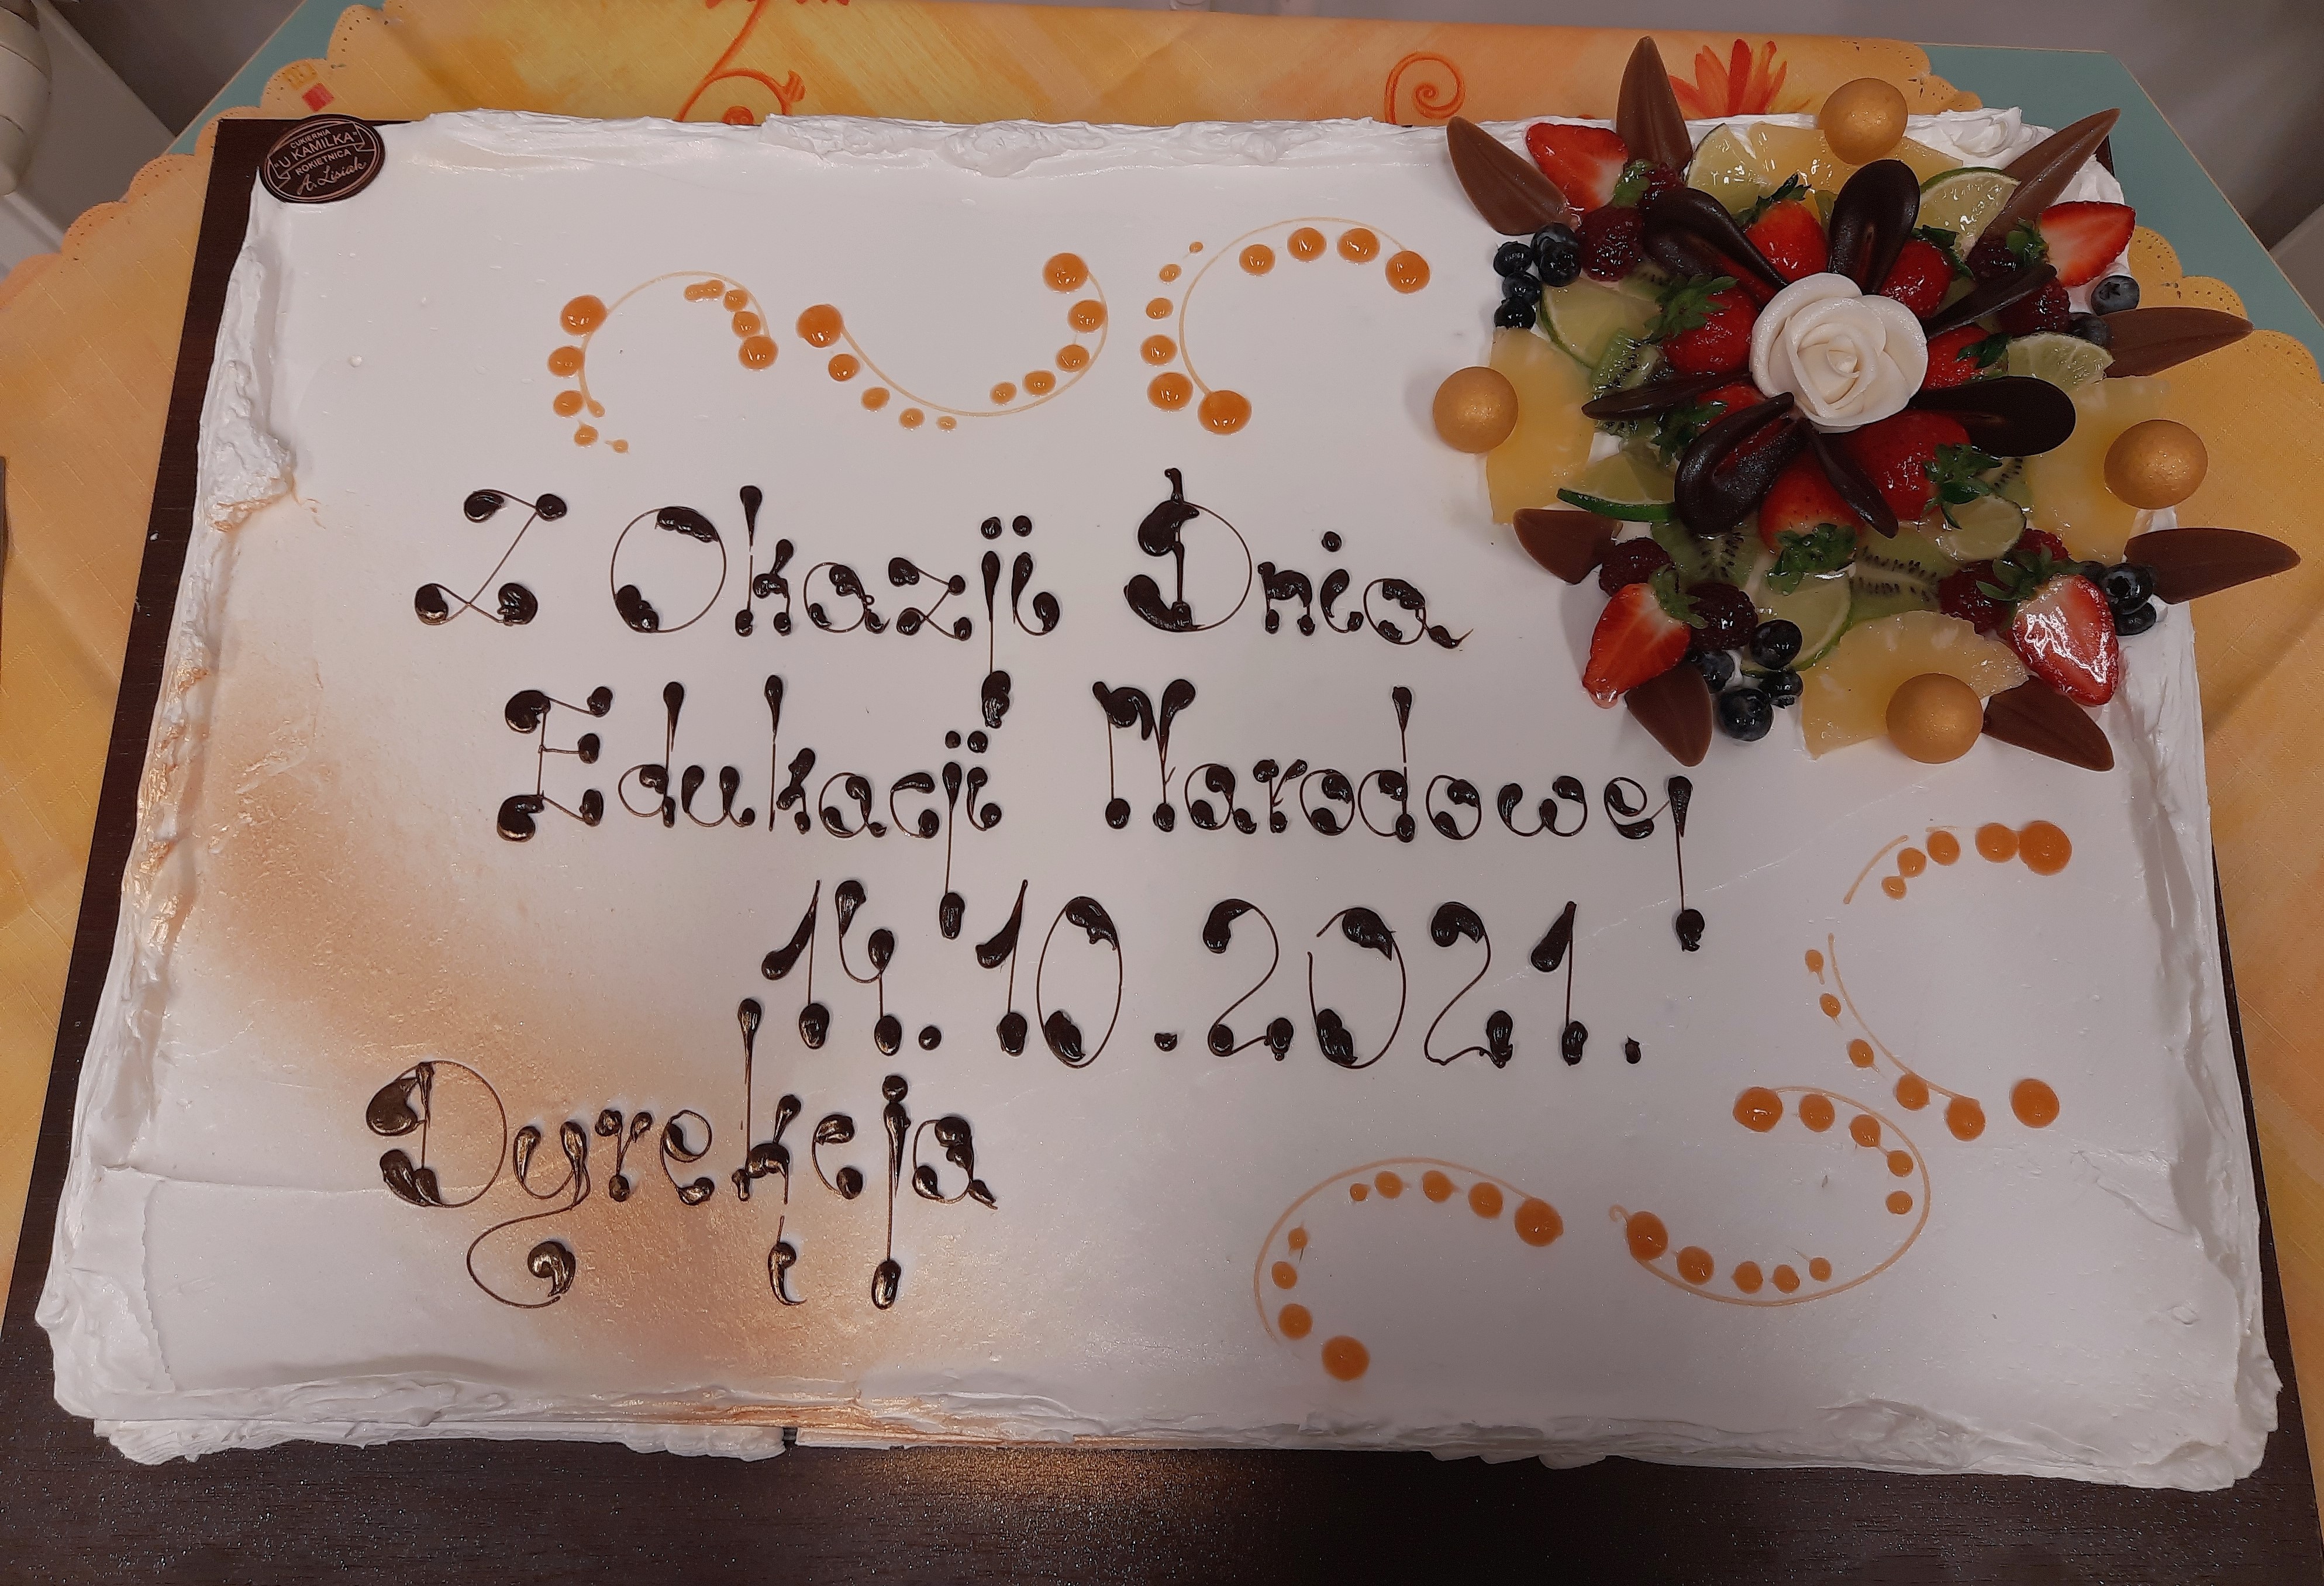 CUKIERNIA
"U KAMILKA"
ROKIETNICA
A. Lisiak
Z Okazji Dnia
Edukacji Narodowej
14.10.2021.
Dyrekcja